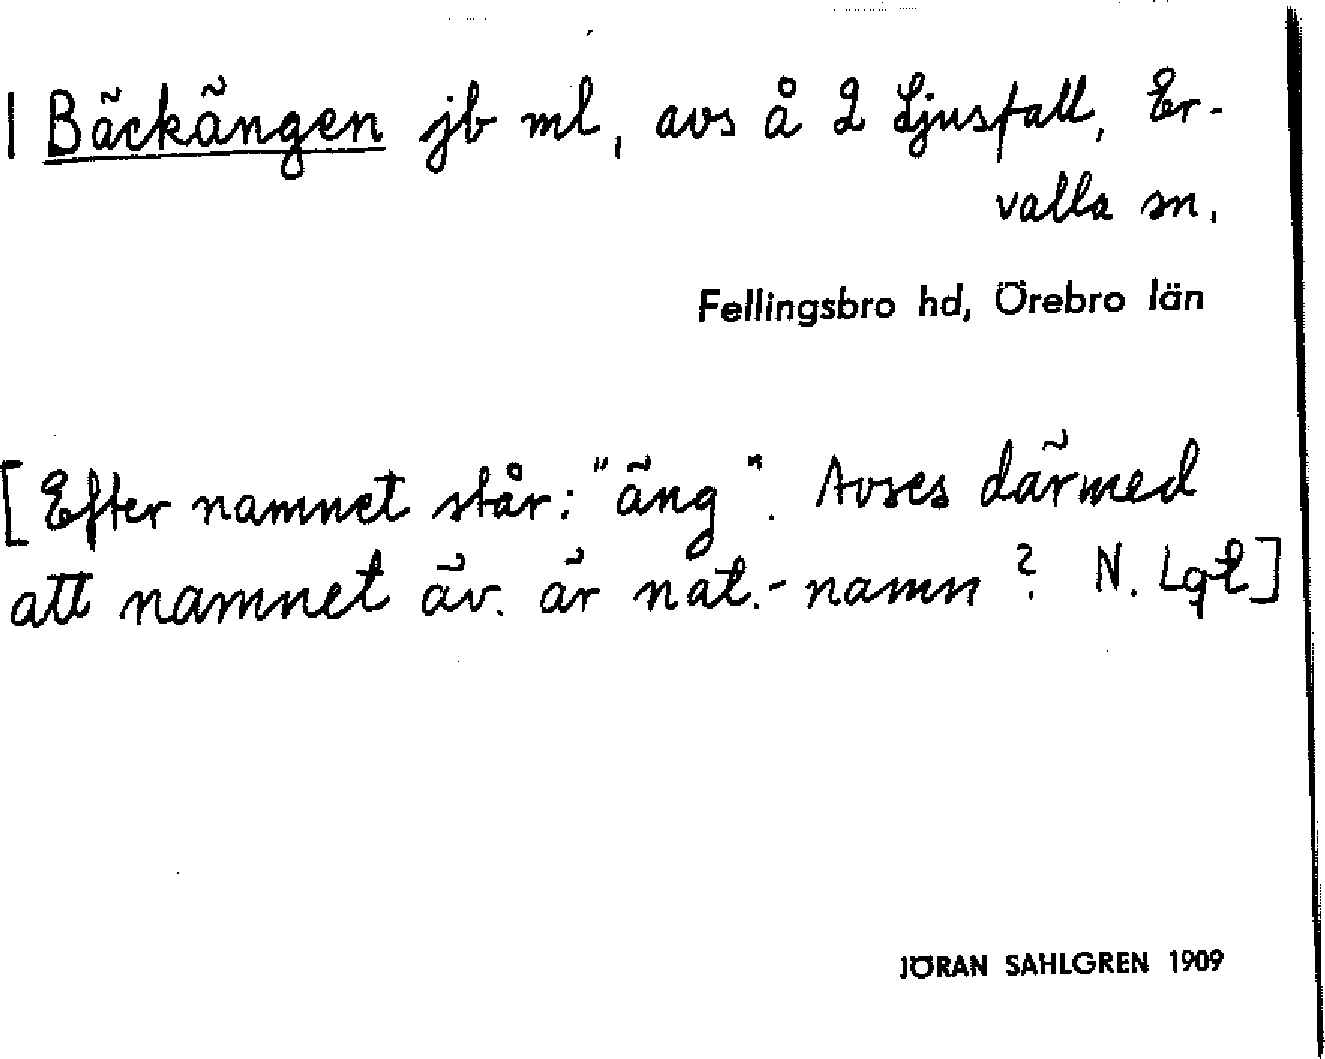 | Bäckängen jb ml, avs å 2 Ljusfall, Er-
valla sn.
Fellingsbro hd, Örebro län
[Efter namnet står: "äng". Avses därmed
att namnet äv. är nat.-namn? N. Lgt]
JÖRAN SAHLGREN 1909